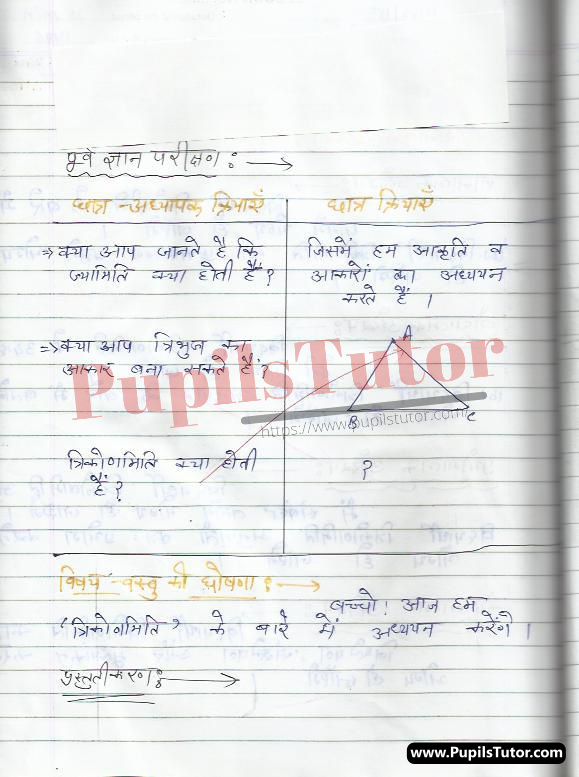 पूर्व ज्ञान परीक्षण :- →
छात्र-अध्यापक क्रियाएँ
छात्र क्रियाएँ
⇒ क्या आप जानते है कि
ज्यामिति क्या होती है ?
जिसमें हम आकृति व
आकारों का अध्ययन
करते हैं ।
⇒ क्या आप त्रिभुज का
आकार बना सकते हैं ?
A
B
C
PupilsTutor
https://www.pupilstutor.com/
त्रिकोणमिति क्या होती
है ?
?
विषय-वस्तु की घोषणा :- →
बच्चो ! आज हम
'त्रिकोणमिति' के बारे में अध्ययन करेंगे ।
प्रस्तुतीकरण :- →
www.PupilsTutor.com